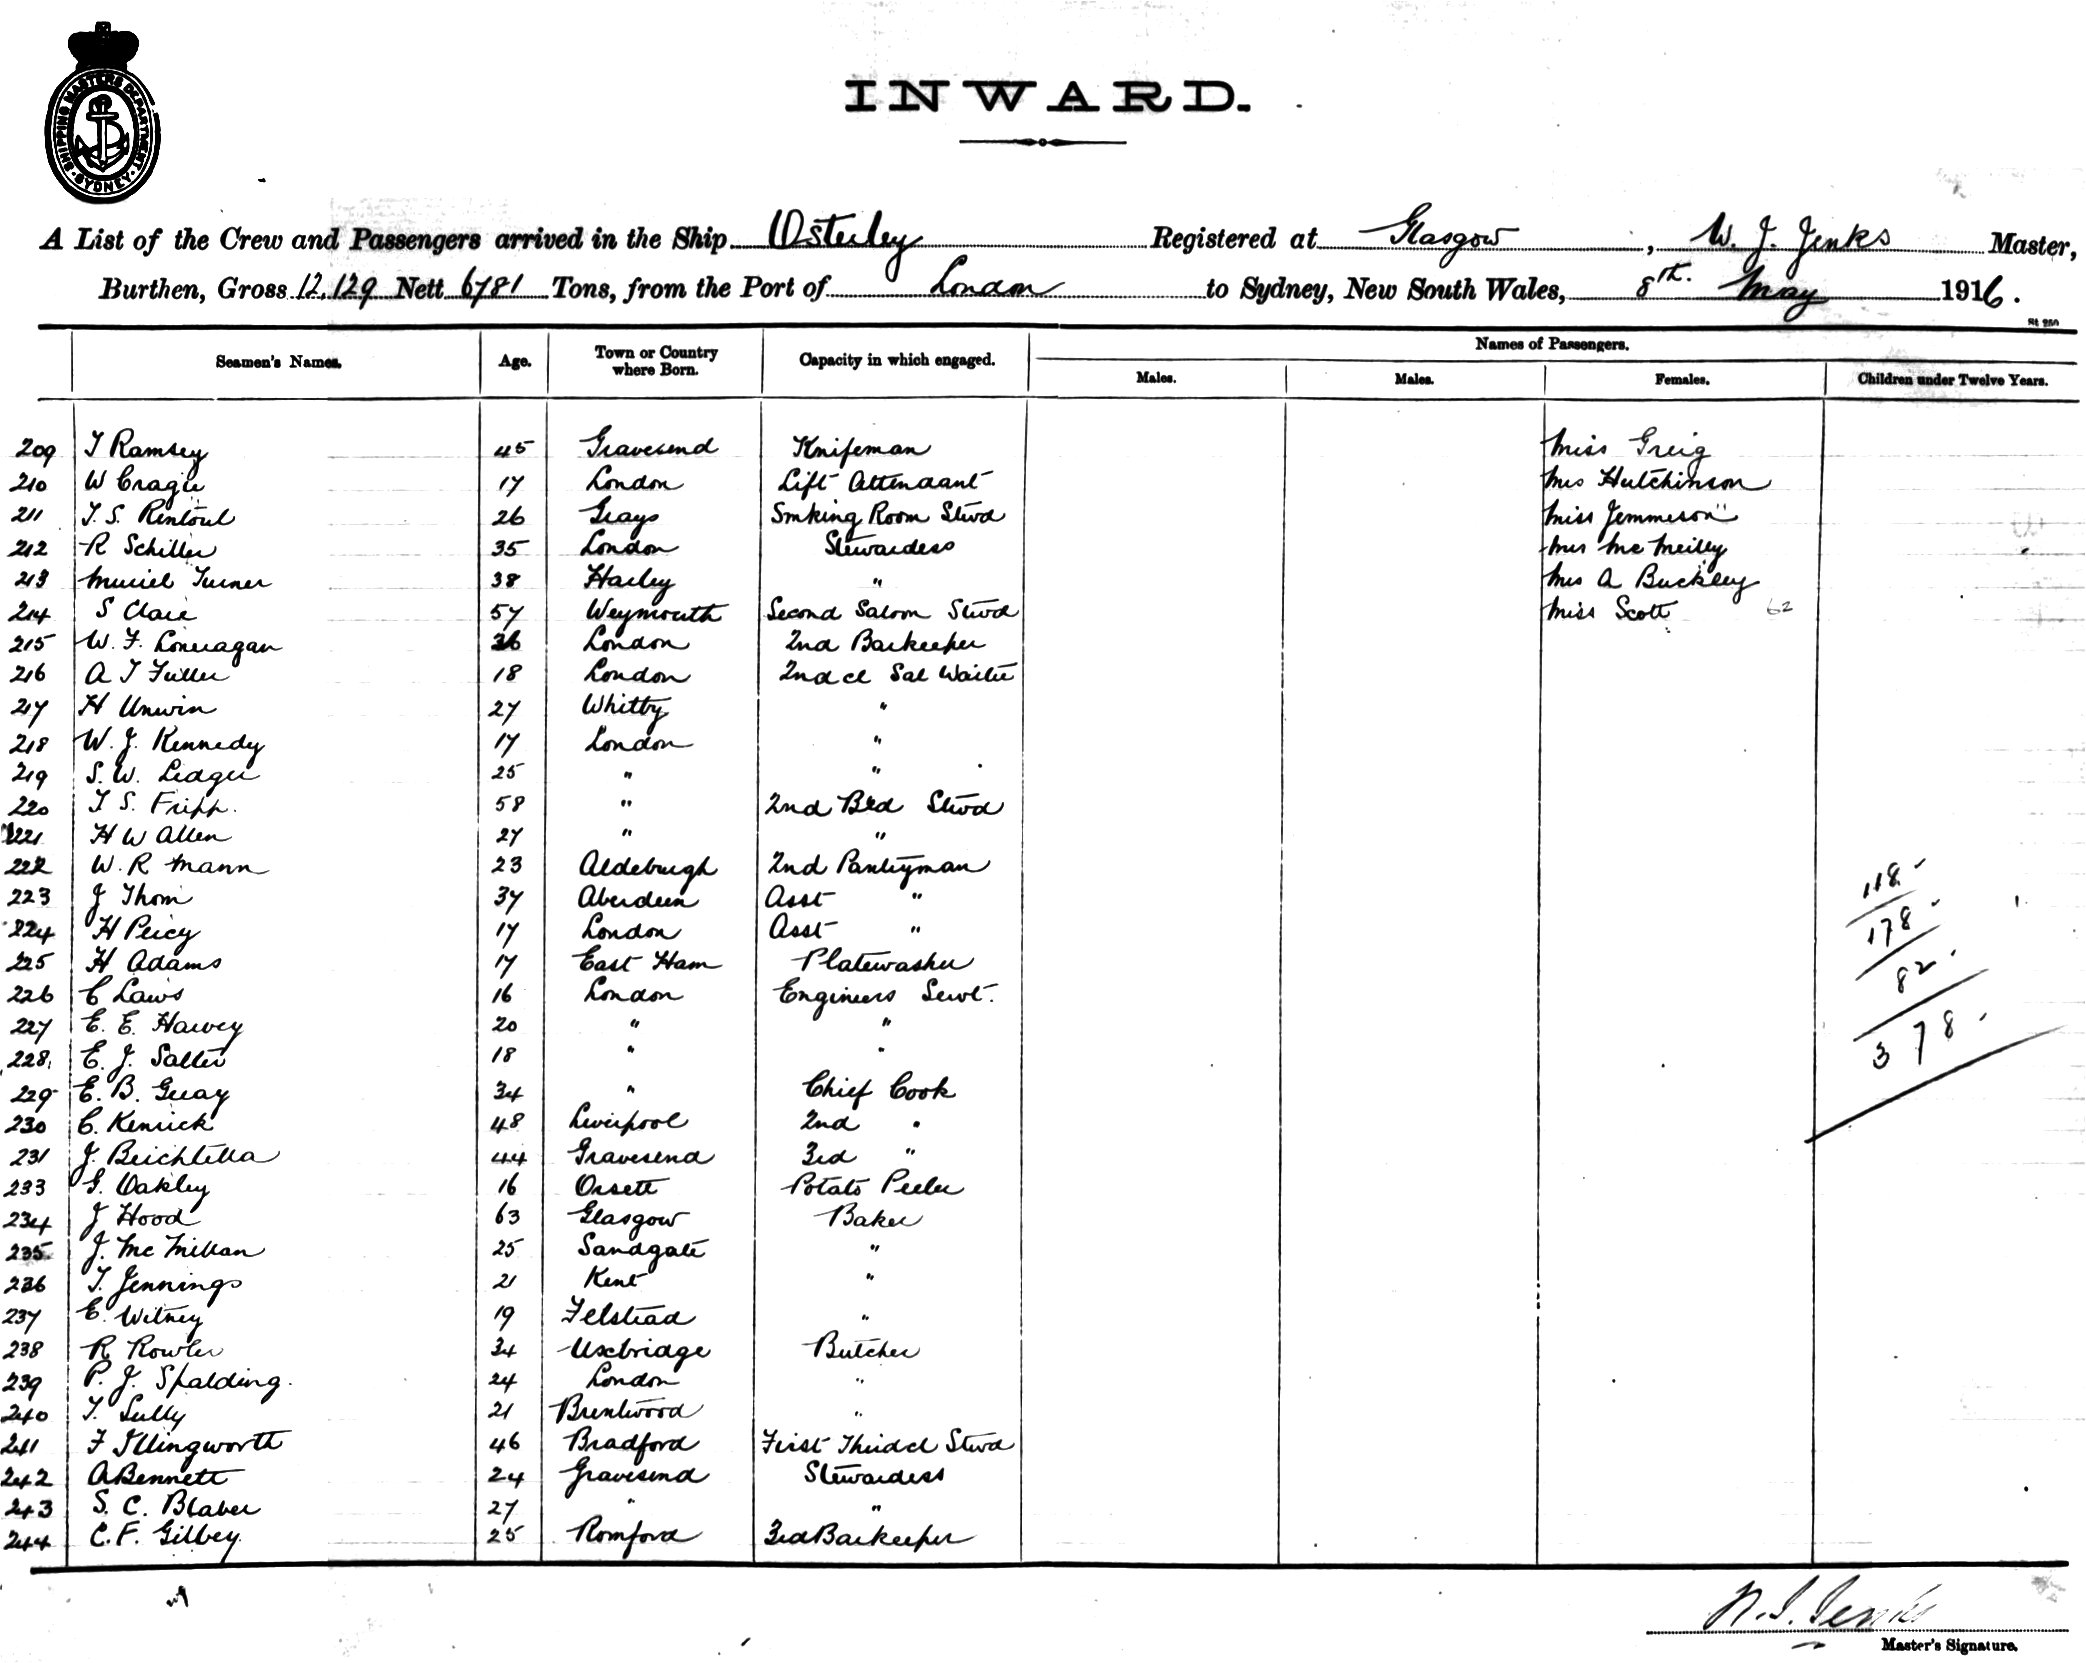 SHIPPING MASTERS DEPARTMENT
SYDNEY
INWARD.
A List of the Crew and Passengers arrived in the Ship Osterley Registered at Glasgow, W. J. Jenks Master,
Burthen, Gross 12,129 Nett 6781 Tons, from the Port of London to Sydney, New South Wales, 8th. May 1916.
St 250
Seamen's Names. Age. Town or Country where Born. Capacity in which engaged. Names of Passengers.
Males. Males. Females. Children under Twelve Years.
209 T Ramsey 45 Gravesend Knifeman Miss Greig
210 W Cragie 17 London Lift Attendant Mrs Hutchinson
211 T. S. Rintoul 26 Grays Smking Room Stwd Miss Jemmeson
212 R Schiller 35 London Stewardess Mrs Mc Meilly
213 Muriel Turner 38 Harley " Mrs A Buckley
214 S Clare 57 Weymouth Second Saloon Stwd Miss Scott 62
215 W. F. Lonergan 36 London 2nd Barkeeper
216 A T Fuller 18 London 2nd cl Sal Waiter
217 H Unwin 27 Whitby "
218 W. J. Kennedy 17 London "
219 S. W. Ledger 25 " "
220 T S. Fripp. 58 " 2nd Bed Stwd
221 H W Allen 27 " "
222 W. R Mann 23 Aldeburgh 2nd Pantryman
223 J Thom 37 Aberdeen Asst "
118
224 H Percy 17 London Asst "
178
225 H Adams 17 East Ham Platewasher
82
226 C Laws 16 London Engineers Servt.
227 E. E. Harvey 20 " "
378
228 E. J. Salter 18 " "
229 E. B. Guay 34 " Chief Cook
230 C. Kenrick 48 Liverpool 2nd "
231 J. Beichtella 44 Gravesend 3rd "
233 G. Oakley 16 Orsett Potato Peeler
234 J Hood 63 Glasgow Baker
235 J. Mc Millan 25 Sandgate "
236 T. Jennings 21 Kent "
237 E. Witney 19 Felstead "
238 R Rowler 34 Uxbridge Butcher
239 P. J. Spalding. 24 London "
240 T. Sully 21 Brentwood "
241 F Illingworth 46 Bradford First Third cl Stwd
242 A Bennett 24 Gravesend Stewardess
243 S. C. Blaber 27 " "
244 C. F. Gilbey. 25 Romford 3rd Barkeeper
W. J. Jenks
Master's Signature.